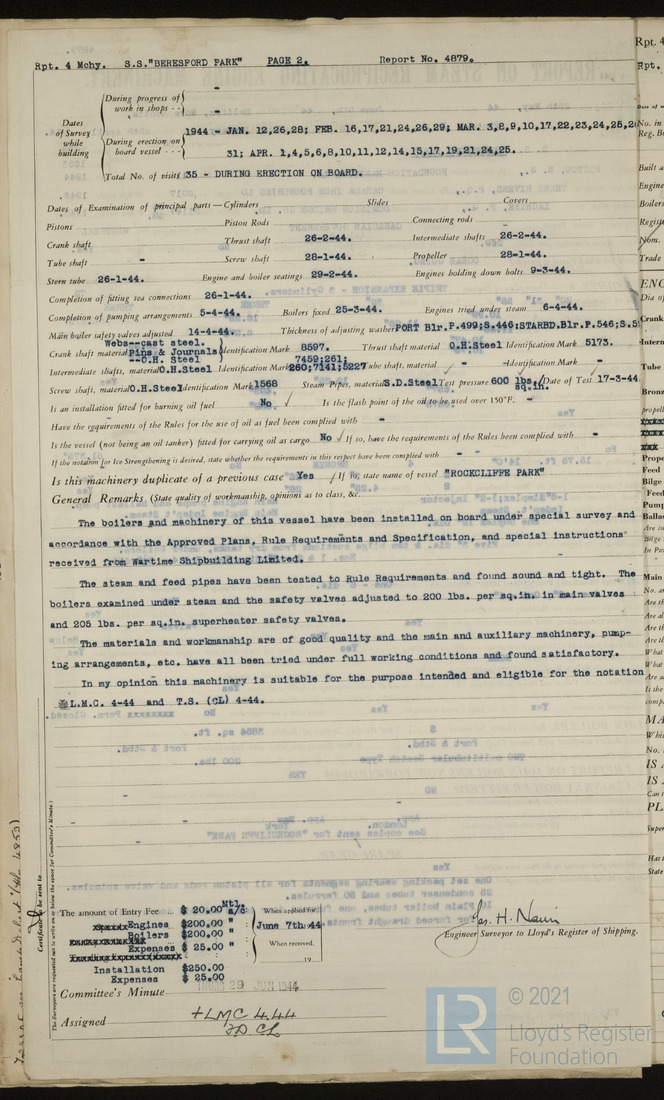 Rpt. 4 Mchy. S.S."BERESFORD PARK" PAGE 2. Report No. 4879.
Dates of Survey while building
During progress of work in shops - -
During erection on board vessel - - -
1944 - JAN. 12,26,28; FEB. 16,17,21,24,26,29; MAR. 3,8,9,10,17,22,23,24,25,2
31; APR. 1,4,5,6,8,10,11,12,14,15,17,19,21,24,25.
Total No. of visits 35 - DURING ERECTION ON BOARD.
Dates of Examination of principal parts—Cylinders Slides Covers
Pistons Piston Rods Connecting rods
Crank shaft Thrust shaft 26-2-44. Intermediate shafts 26-2-44.
Tube shaft - Screw shaft 28-1-44. Propeller 28-1-44.
Stern tube 26-1-44. Engine and boiler seatings 29-2-44. Engines holding down bolts 9-3-44.
Completion of fitting sea connections 26-1-44.
Completion of pumping arrangements 5-4-44. Boilers fixed 25-3-44. Engines tried under steam 6-4-44.
Main boiler safety valves adjusted 14-4-44. Thickness of adjusting washers PORT Blr.P.499;S.446:STARBD.Blr.P.546;S.5
Crank shaft material Webs--cast steel. Pins & Journals --O.H. Steel Identification Mark 8597. Thrust shaft material O.H.Steel Identification Mark 5173.
Intermediate shafts, material O.H.Steel Identification Mark 7459;261; 260;7141;5227 Tube shaft, material - Identification Mark -
Screw shaft, material O.H.Steel Identification Mark 1568 Steam Pipes, material S.D.Steel Test pressure 600 lbs./sq.in. Date of Test 17-3-44
Is an installation fitted for burning oil fuel No Is the flash point of the oil to be used over 150°F. -
Have the requirements of the Rules for the use of oil as fuel been complied with -
Is the vessel (not being an oil tanker) fitted for carrying oil as cargo No If so, have the requirements of the Rules been complied with -
If the notation for Ice Strengthening is desired, state whether the requirements in this respect have been complied with -
Is this machinery duplicate of a previous case Yes If so, state name of vessel "ROCKCLIFFE PARK"
General Remarks (State quality of workmanship, opinions as to class, &c.
The boilers and machinery of this vessel have been installed on board under special survey and
accordance with the Approved Plans, Rule Requirements and Specification, and special instructions
received from Wartime Shipbuilding Limited.
The steam and feed pipes have been tested to Rule Requirements and found sound and tight. The
boilers examined under steam and the safety valves adjusted to 200 lbs. per sq.in. in main valves
and 205 lbs. per sq.in. superheater safety valves.
The materials and workmanship are of good quality and the main and auxiliary machinery, pump-
ing arrangements, etc. have all been tried under full working conditions and found satisfactory.
In my opinion this machinery is suitable for the purpose intended and eligible for the notation
L.M.C. 4-44 and T.S. (CL) 4-44.
Certificate to be sent to
(The Surveyors are requested not to write on or below the space for Committee's Minute.)
The amount of Entry Fee $ 20.00 Mtl. a/c
Engines $200.00 "
Boilers $200.00 "
Expenses $ 25.00 "
Installation $250.00
Expenses $ 25.00
When applied for,
June 7th 44
When received,
19
Jas. H. Nairn
Engineer Surveyor to Lloyd's Register of Shipping.
Committee's Minute THURS 29 JUN 1944
Assigned + LMC 4.44
FD CL
LR © 2021
Lloyd's Register
Foundation